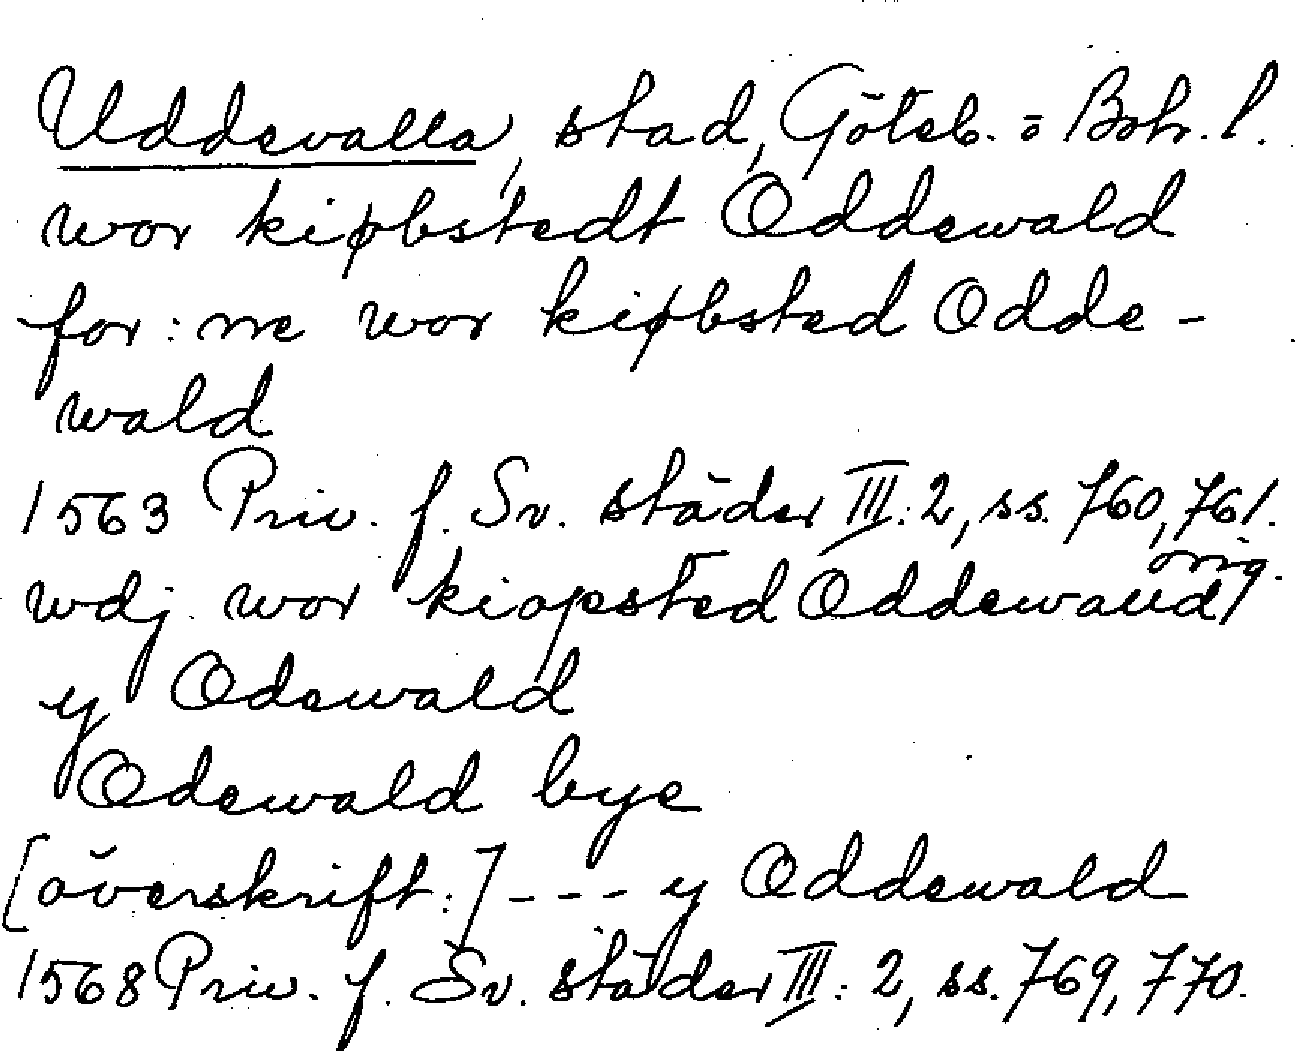 Uddevalla, stad, Göteb. o Boh. l.
wor kiøbstedt Oddewald
for: ne wor kiøbsted Odde-
wald
1563 Priv. f. Sv. städer III: 2, ss. 760, 761.
wdj wor kiøpsted Oddewaud/ orig.
y Odewald
Odewald bye
[överskrift:] --- y Oddewald
1568 Priv. f. Sv. städer III: 2, ss. 769, 770.